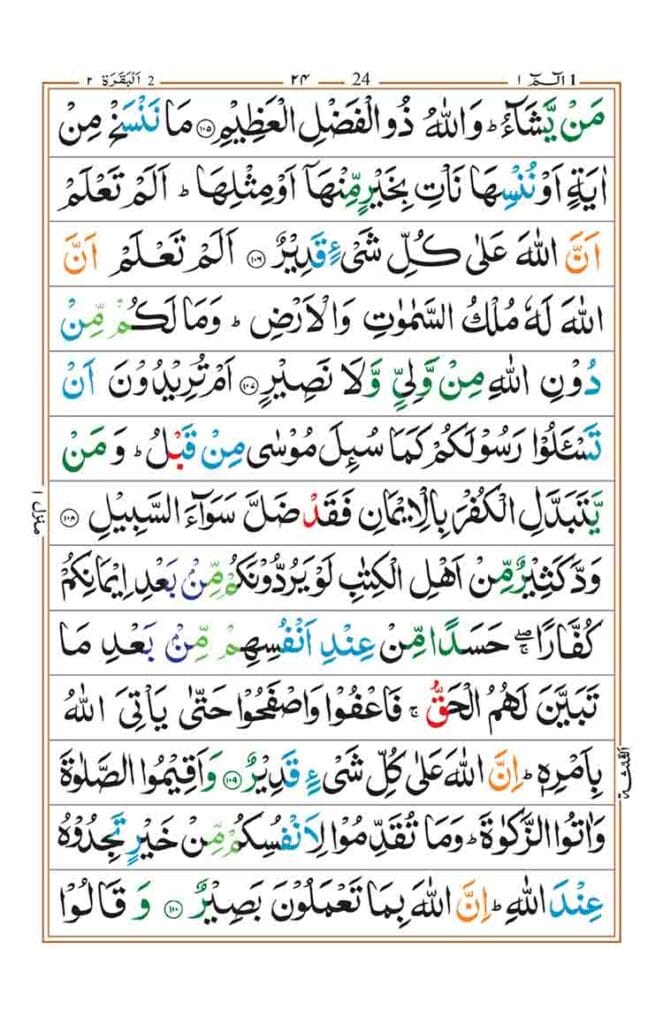 الٓمّٓ ١ 1
24 ٢٤
2 اَلْبَقَرَة ٢
مَنْ يَّشَآءُ ؕ وَاللّٰهُ ذُو الْفَضْلِ الْعَظِيْمِ ۝١٠٥ مَا نَنْسَخْ مِنْ
اٰيَةٍ اَوْ نُنْسِهَا نَاْتِ بِخَيْرٍ مِّنْهَاۤ اَوْ مِثْلِهَا ؕ اَلَمْ تَعْلَمْ
اَنَّ اللّٰهَ عَلٰى كُلِّ شَىْءٍ قَدِيْرٌ ۝١٠٦ اَلَمْ تَعْلَمْ اَنَّ
اللّٰهَ لَهٗ مُلْكُ السَّمٰوٰتِ وَالْاَرْضِ ؕ وَمَا لَكُمْ مِّنْ
دُوْنِ اللّٰهِ مِنْ وَّلِىٍّ وَّلَا نَصِيْرٍ ۝١٠٧ اَمْ تُرِيْدُوْنَ اَنْ
تَسْـَٔلُوْا رَسُوْلَكُمْ كَمَا سُىِٕلَ مُوْسٰى مِنْ قَبْلُ ؕ وَمَنْ
يَّتَبَدَّلِ الْكُفْرَ بِالْاِيْمَانِ فَقَدْ ضَلَّ سَوَآءَ السَّبِيْلِ ۝١٠٨
وَدَّ كَثِيْرٌ مِّنْ اَهْلِ الْكِتٰبِ لَوْ يَرُدُّوْنَكُمْ مِّنْۢ بَعْدِ اِيْمَانِكُمْ
كُفَّارًا ۖۚ حَسَدًا مِّنْ عِنْدِ اَنْفُسِهِمْ مِّنْۢ بَعْدِ مَا
تَبَيَّنَ لَهُمُ الْحَقُّ ۚ فَاعْفُوْا وَاصْفَحُوْا حَتّٰى يَاْتِىَ اللّٰهُ
بِاَمْرِهٖ ؕ اِنَّ اللّٰهَ عَلٰى كُلِّ شَىْءٍ قَدِيْرٌ ۝١٠٩ وَاَقِيْمُوا الصَّلٰوةَ
وَاٰتُوا الزَّكٰوةَ ؕ وَمَا تُقَدِّمُوْا لِاَنْفُسِكُمْ مِّنْ خَيْرٍ تَجِدُوْهُ
عِنْدَ اللّٰهِ ؕ اِنَّ اللّٰهَ بِمَا تَعْمَلُوْنَ بَصِيْرٌ ۝١١٠ وَقَالُوْا
منزل ١
الثلٰثة